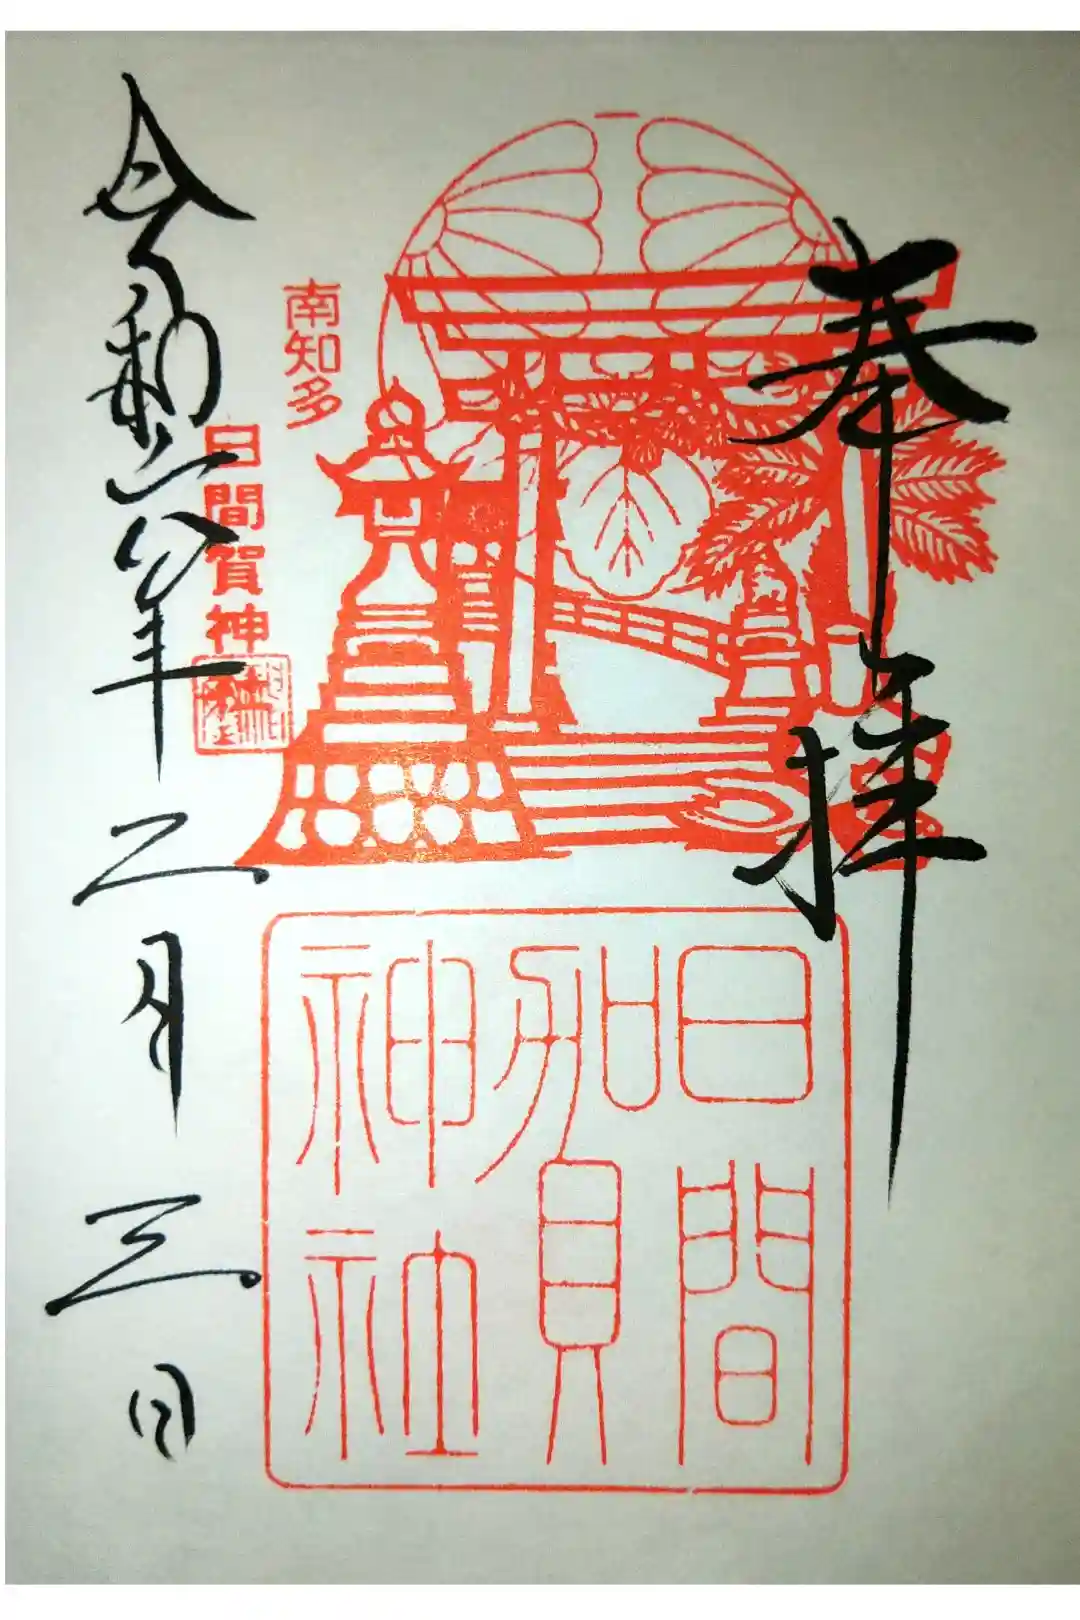 奉拝
南知多
日間賀神社
令和六年二月三日
日間
賀
神社